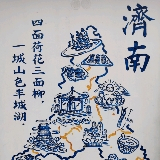 濟南
四面荷花三面柳
一城山色半城湖